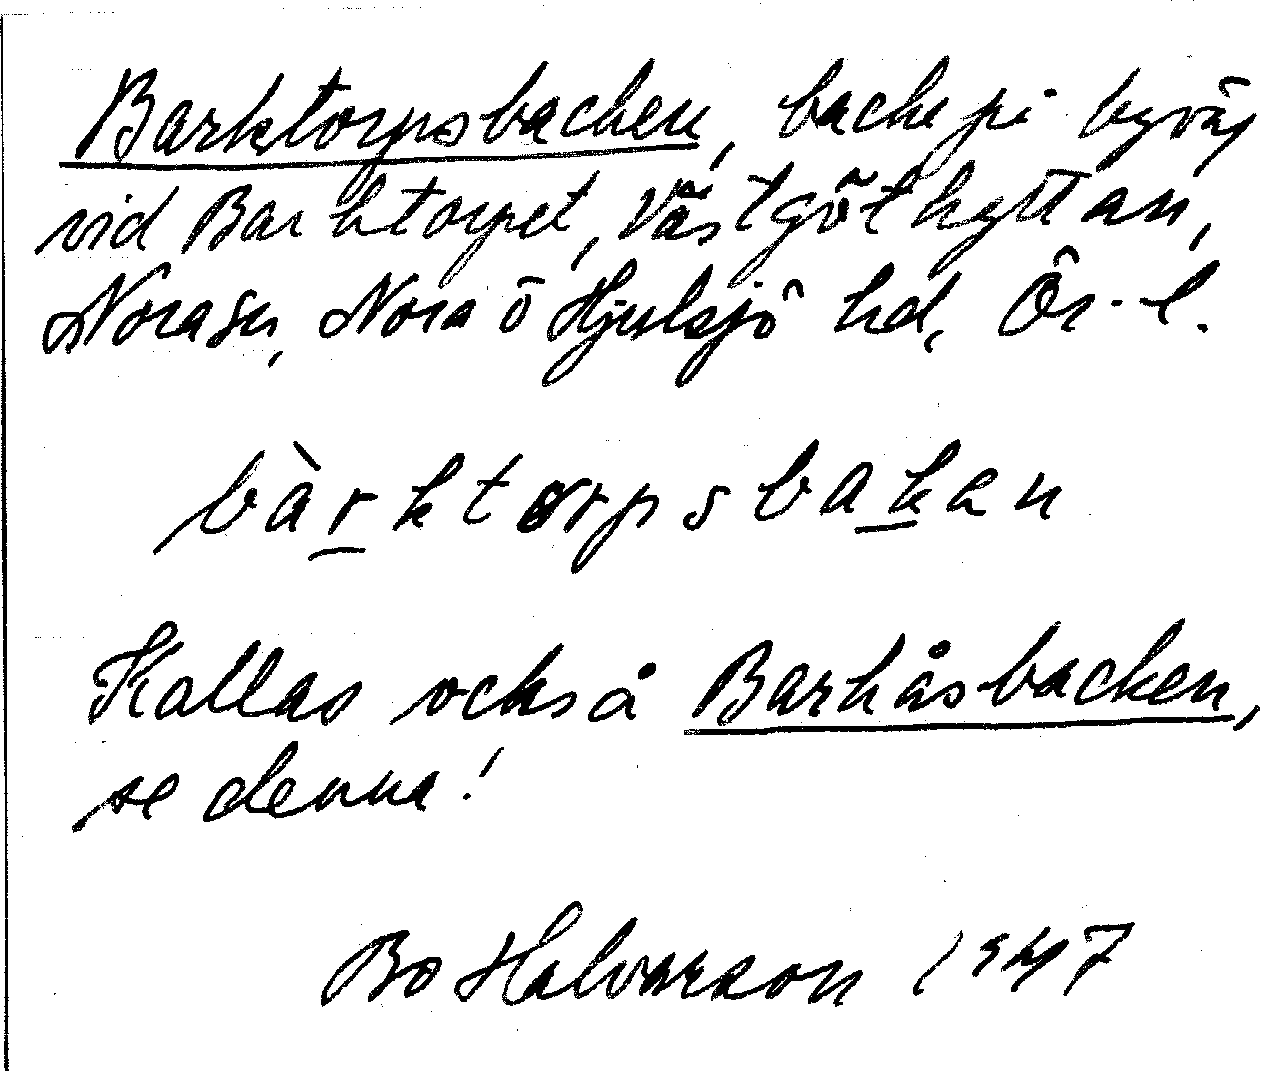 Barktorpsbacken, backe på byväg
vid Barktorpet, Västgöthyttan,
Nora sn, Nora o Hjulsjö hd, Ör. l.
bàrktorpsbakan
Kallas också Barkåsbacken,
se denna!
Bo Halvarson 1947